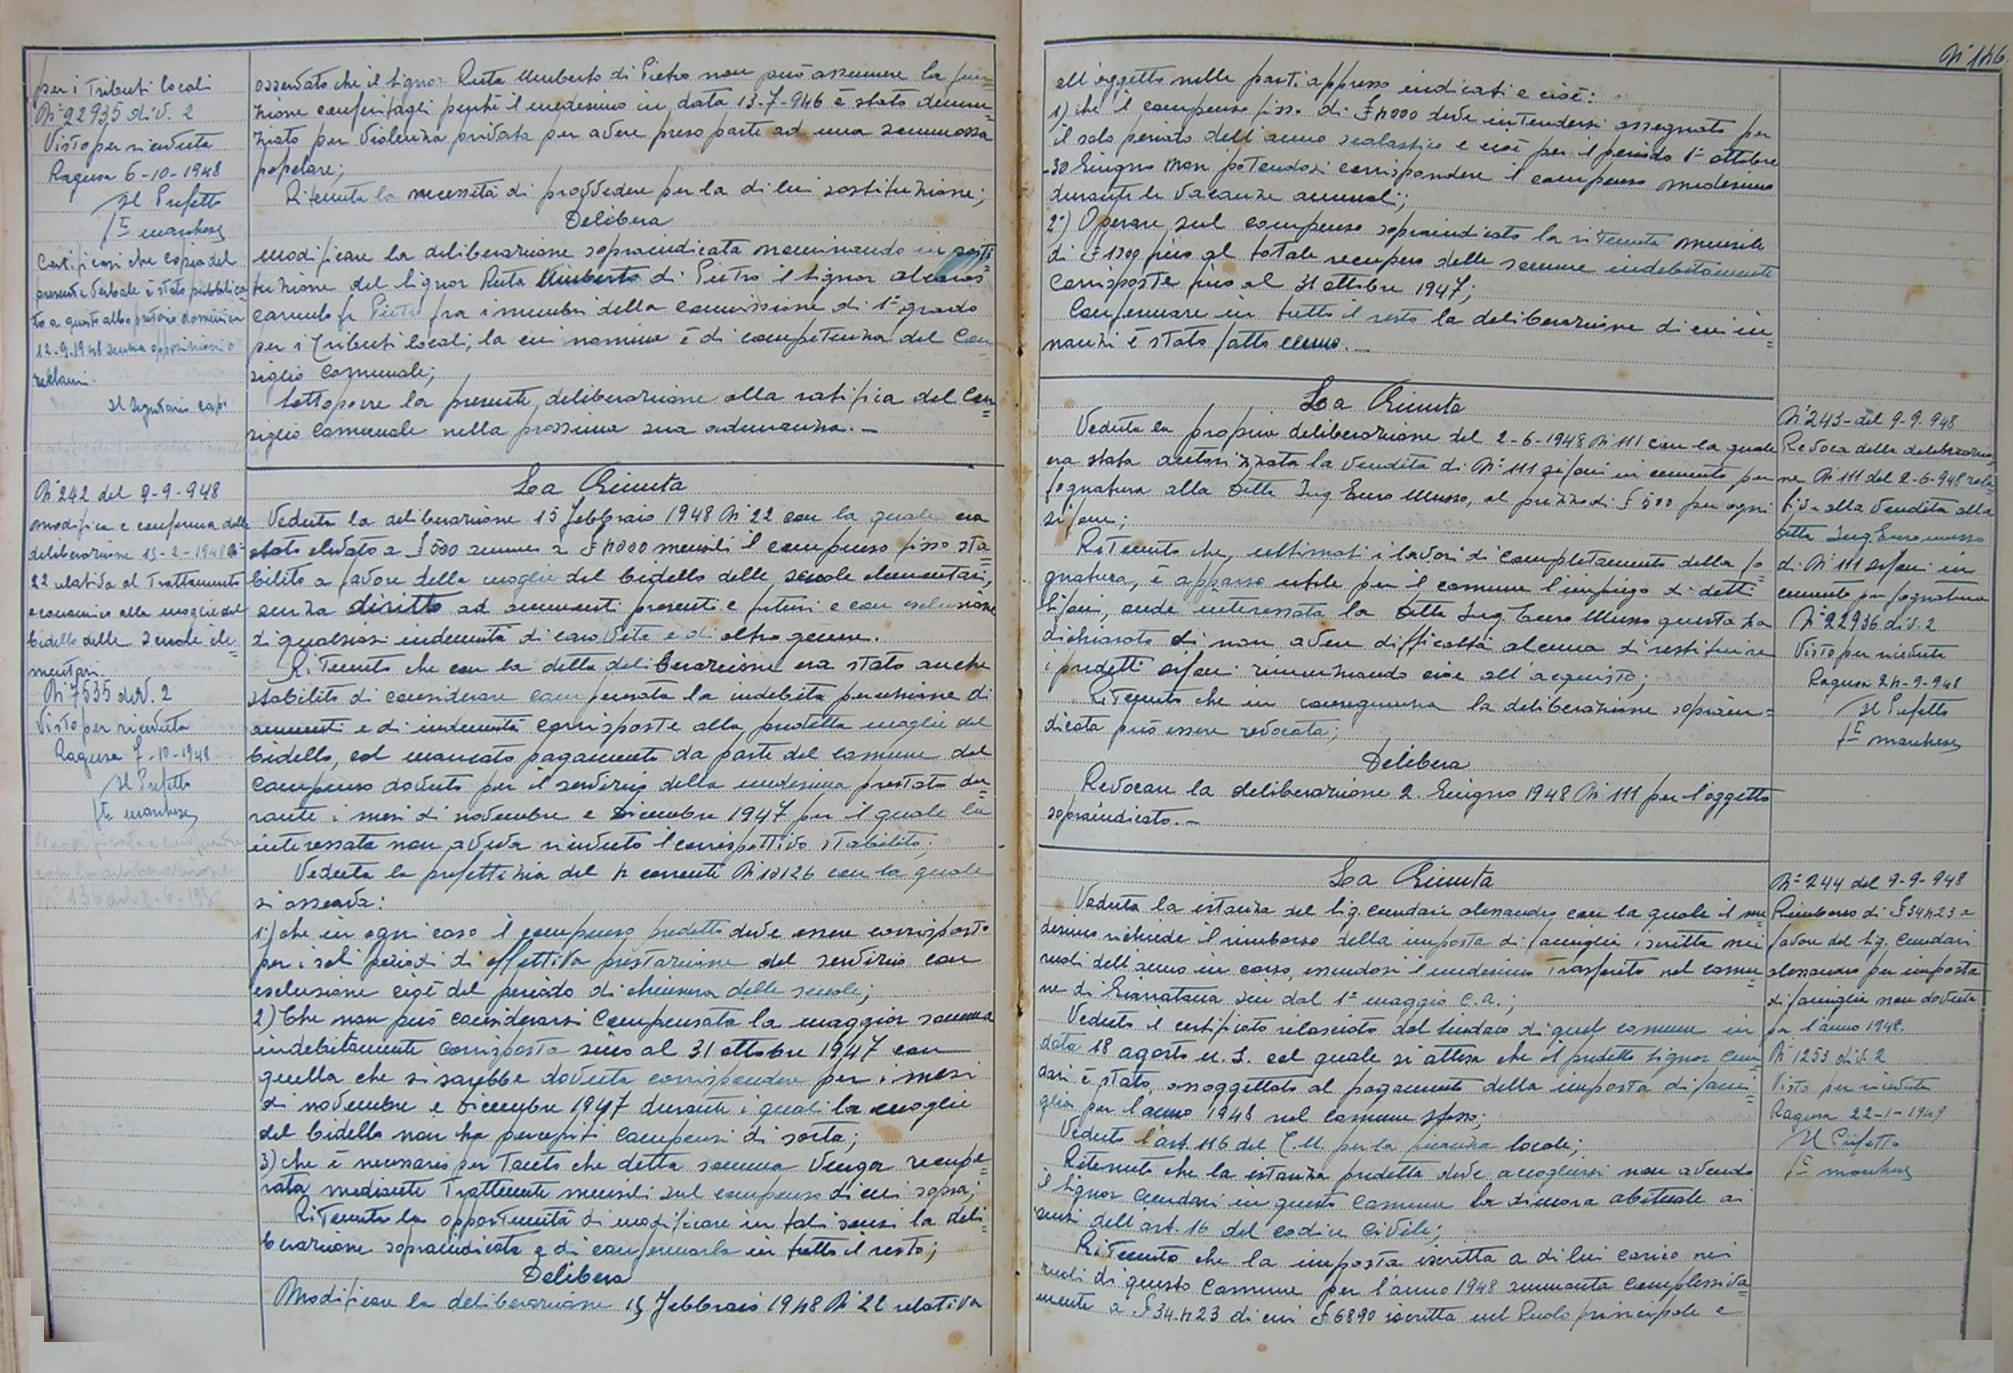 per i Tributi locali
N° 22935 div. 2
Visto per ricevuta
Ragusa 6-10-1948
Il Prefetto
Fto marchese
Certificasi che copia del
presente verbale è stato pubblica-
to a questo albo pretorio domenica
12-9-1948 senza opposizioni o
reclami.
Il Segretario capo
osservato che il Signor Ruta Umberto di Pietro non può assumere la fun=
zione conferitagli perché il medesimo in data 13-7-946 è stato denun=
ziato per violenza privata per avere preso parte ad una sommossa
popolare;
Ritenuta la necessità di provvedere per la di lui sostituzione;
Delibera
modificare la deliberazione sopraindicata nominando in sosti
tuzione del Signor Ruta Umberto di Pietro il Signor
fu Pietro fra i membri della commissione di 1° grado
per i tributi locali, la cui nomina è di competenza del Con
siglio Comunale;
Sottoporre la presente deliberazione alla ratifica del Con
siglio Comunale nella prossima sua adunanza.—
N° 242 del 9-9-948
modifica e conferma della
deliberazione 15-2-1948 N°
22 relativa al Trattamento
economico alla moglie del
bidello delle Scuole ele=
mentari.
N° 7535 div. 2
Visto per ricevuta
Ragusa 7-10-1948
Il Prefetto
Fto marchese
La Giunta
Veduta la deliberazione 15 Febbraio 1948 N° 22 con la quale era
stato elevato a £ 500 annue a £ 4000 mensili il compenso fisso sta=
bilito a favore della moglie del bidello delle scuole elementari,
senza diritto ad aumenti presenti e futuri e con esclusione
di qualsiasi indennità di caro vita e di altro genere.
Ritenuto che con la detta deliberazione era stato anche
stabilito di considerare compensata la indebita percezione di
aumenti e di indennità corrisposte alla predetta moglie del
bidello, col mancato pagamento da parte del comune del
compenso dovuto per il servizio della medesima prestato du=
rante i mesi di novembre e Dicembre 1947 per il quale la
interessata non aveva ricevuto il corrispettivo stabilito;
Veduta la prefettizia del 4 corrente N° 18126 con la quale
si osserva:
1°) che in ogni caso il compenso predetto deve essere corrisposto
per i soli periodi di effettiva prestazione del servizio con
esclusione cioè del periodo di chiusura delle scuole;
2) Che non può considerarsi Compensata la maggior somma
indebitamente corrisposta sino al 31 ottobre 1947 con
quella che si sarebbe dovuta corrispondere per i mesi
di novembre e Dicembre 1947 durante i quali la moglie
del bidello non ha percepiti compensi di sorta;
3) che è necessario per Tanto che detta somma venga recupe=
rata mediante Trattenute mensili sul compenso di cui sopra;
Ritenuta la opportunità di modificare in tali sensi la deli=
berazione sopraindicata e di confermarla in tutto il resto;
Delibera
Modificare la deliberazione 15 Febbraio 1948 N° 22 relativa
N° 146
all'oggetto nelle parti appresso indicati e cioè:
1) che il compenso fisso di £ 4000 deve intendersi assegnato per
il solo periodo dell'anno scolastico e cioè per il periodo 1° ottobre
-30 Giugno non potendosi corrispondere il compenso medesimo
durante le vacanze annuali;
2°) Operare sul compenso sopraindicato la ritenuta mensile
di £ 1300 fino al totale recupero delle somme indebitamente
corrisposte fino al 31 ottobre 1947;
Confermare in tutto il resto la deliberazione di cui in=
nanzi è stato fatto cenno.—
La Giunta
Veduta la propria deliberazione del 2-6-1948 N° 111 con la quale
era stata autorizzata la vendita di N° 111 sifoni in cemento per
fognatura alla Ditta Ing. Enzo Musso, al prezzo di £ 500 per ogni
sifone;
Ritenuto che, ultimati i lavori di completamento della fo=
gnatura, è apparso utile per il comune l'impiego di detti
sifoni, onde interessata la Ditta Ing. Enzo Musso questa ha
dichiarato di non avere difficoltà alcuna di restituire
i predetti sifoni rinunziando cioè all'acquisto;
Ritenuto che in conseguenza la deliberazione soprain=
dicata può essere revocata;
Delibera
Revocare la deliberazione 2 Giugno 1948 N° 111 per l'oggetto
sopraindicato.—
N° 243-del 9-9-948
Revoca della deliberazio=
ne N° 111 del 2-6-948 rela
tiva alla vendita alla
Ditta Ing. Enzo Musso
di N° 111 sifoni in
cemento per fognatura
N° 22936 div. 2
Visto per ricevuta
Ragusa 24-9-948
Il Prefetto
Fto marchese
La Giunta
Veduta la istanza del Sig. Cundari Alessandro con la quale il me
desimo richiede il rimborso della imposta di famiglia iscritta nei
ruoli dell'anno in corso, essendosi il medesimo Trasferito nel comu=
ne di Giarratana sin dal 1° maggio c.a.;
Veduto il certificato rilasciato dal Sindaco di quel comune in
data 18 agosto u.s. col quale si attesta che il predetto Signor Cun
dari è stato assoggettato al pagamento della imposta di fami=
glia per l'anno 1948 nel comune stesso;
Veduto l'art. 116 del T.U. per la finanza locale;
Ritenuto che la istanza predetta deve accogliersi non avendo
il Signor Cundari in questo Comune la dimora abituale ai
sensi dell'art. 16 del codice Civile;
Ritenuto che la imposta iscritta a di lui carico nei
ruoli di questo Comune per l'anno 1948 ammonta complessiva
mente a £ 34.423 di cui £ 6890 iscritta nel Ruolo principale e
N° 244 del 9-9-948
Rimborso di £ 34423 a
favore del Sig. Cundari
Alessandro per imposta
di famiglia non dovuta
per l'anno 1948.
N° 1253 div. 2
Visto per ricevuta
Ragusa 22-1-1949
Il Prefetto
Fto marchese